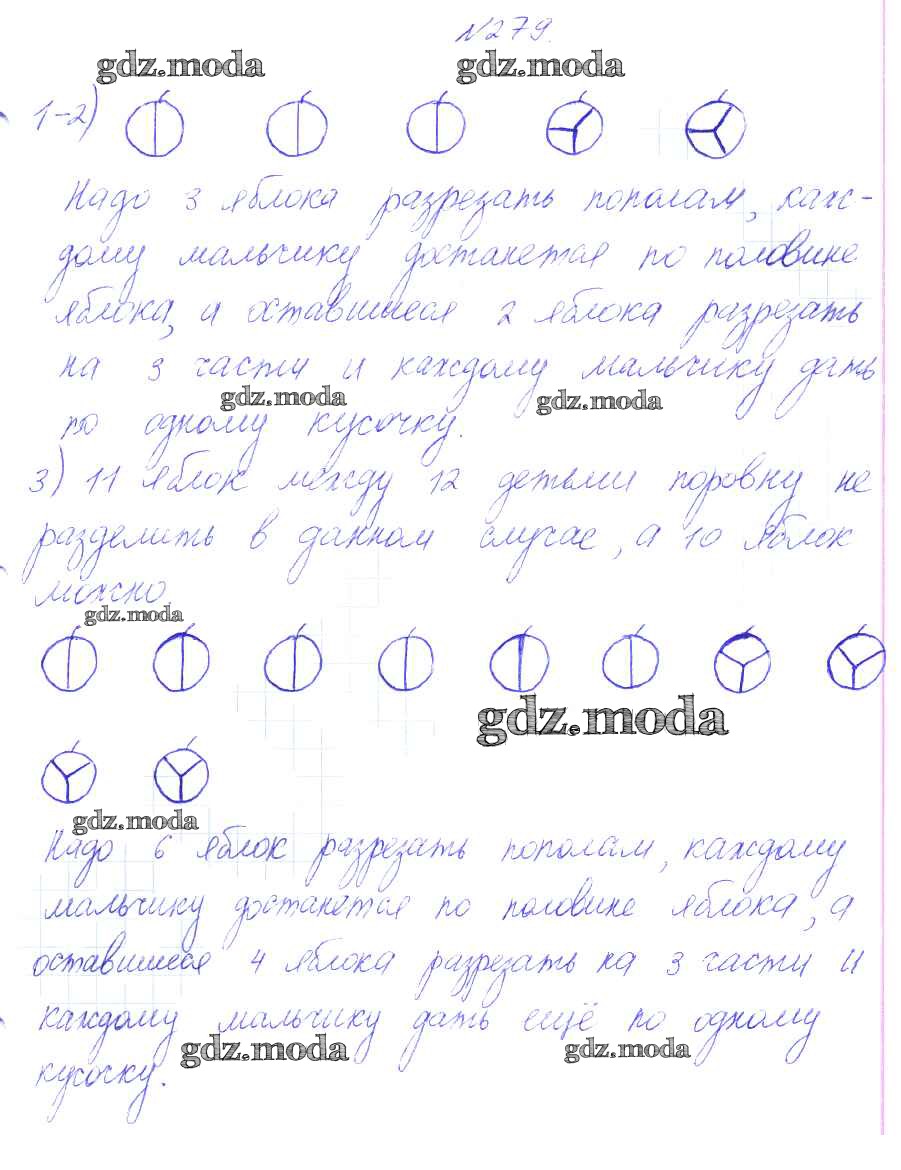 №279.
gdz.moda gdz.moda
1-2)
Надо 3 яблока разрезать пополам, каж-
дому мальчику достанется по половине
яблока, а оставшиеся 2 яблока разрезать
на 3 части и каждому мальчику дать
gdz.moda gdz.moda
по одному кусочку.
3) 11 яблок между 12 детьми поровну не
разделить в данном случае, а 10 яблок
можно.
gdz.moda
gdz.moda
gdz.moda
Надо 6 яблок разрезать пополам, каждому
мальчику достанется по половине яблока, а
оставшиеся 4 яблока разрезать на 3 части и
каждому мальчику дать ещё по одному
gdz.moda gdz.moda
кусочку.